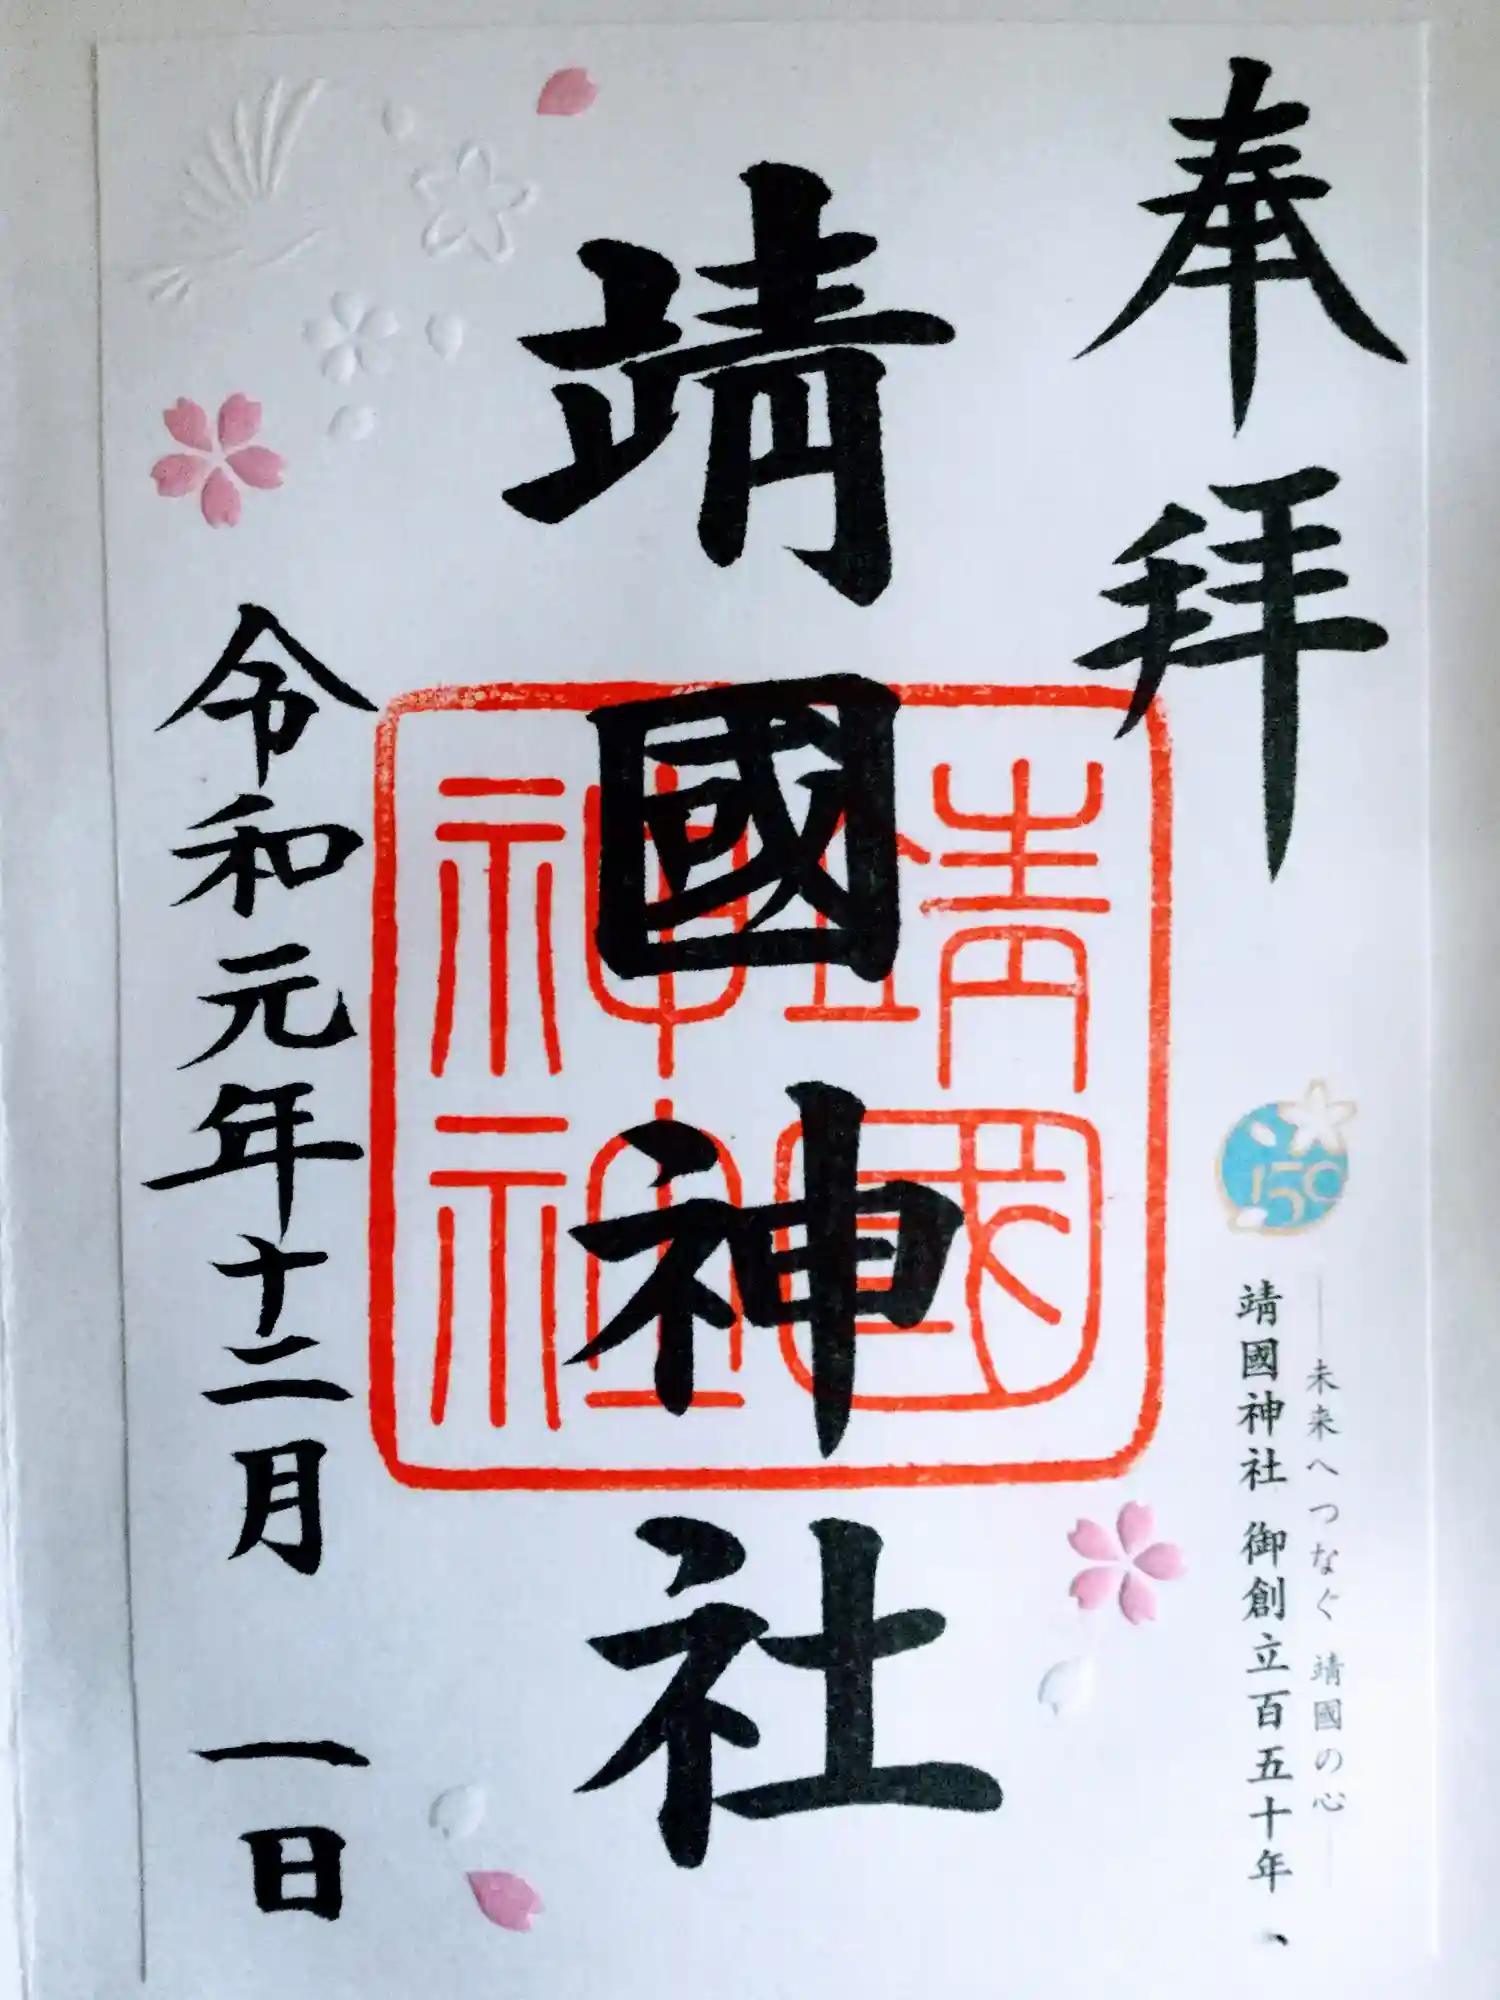 奉拝
150
―未来へつなぐ 靖國の心―
靖國神社 御創立百五十年
靖國神社
靖國神社
令和元年十二月 一日